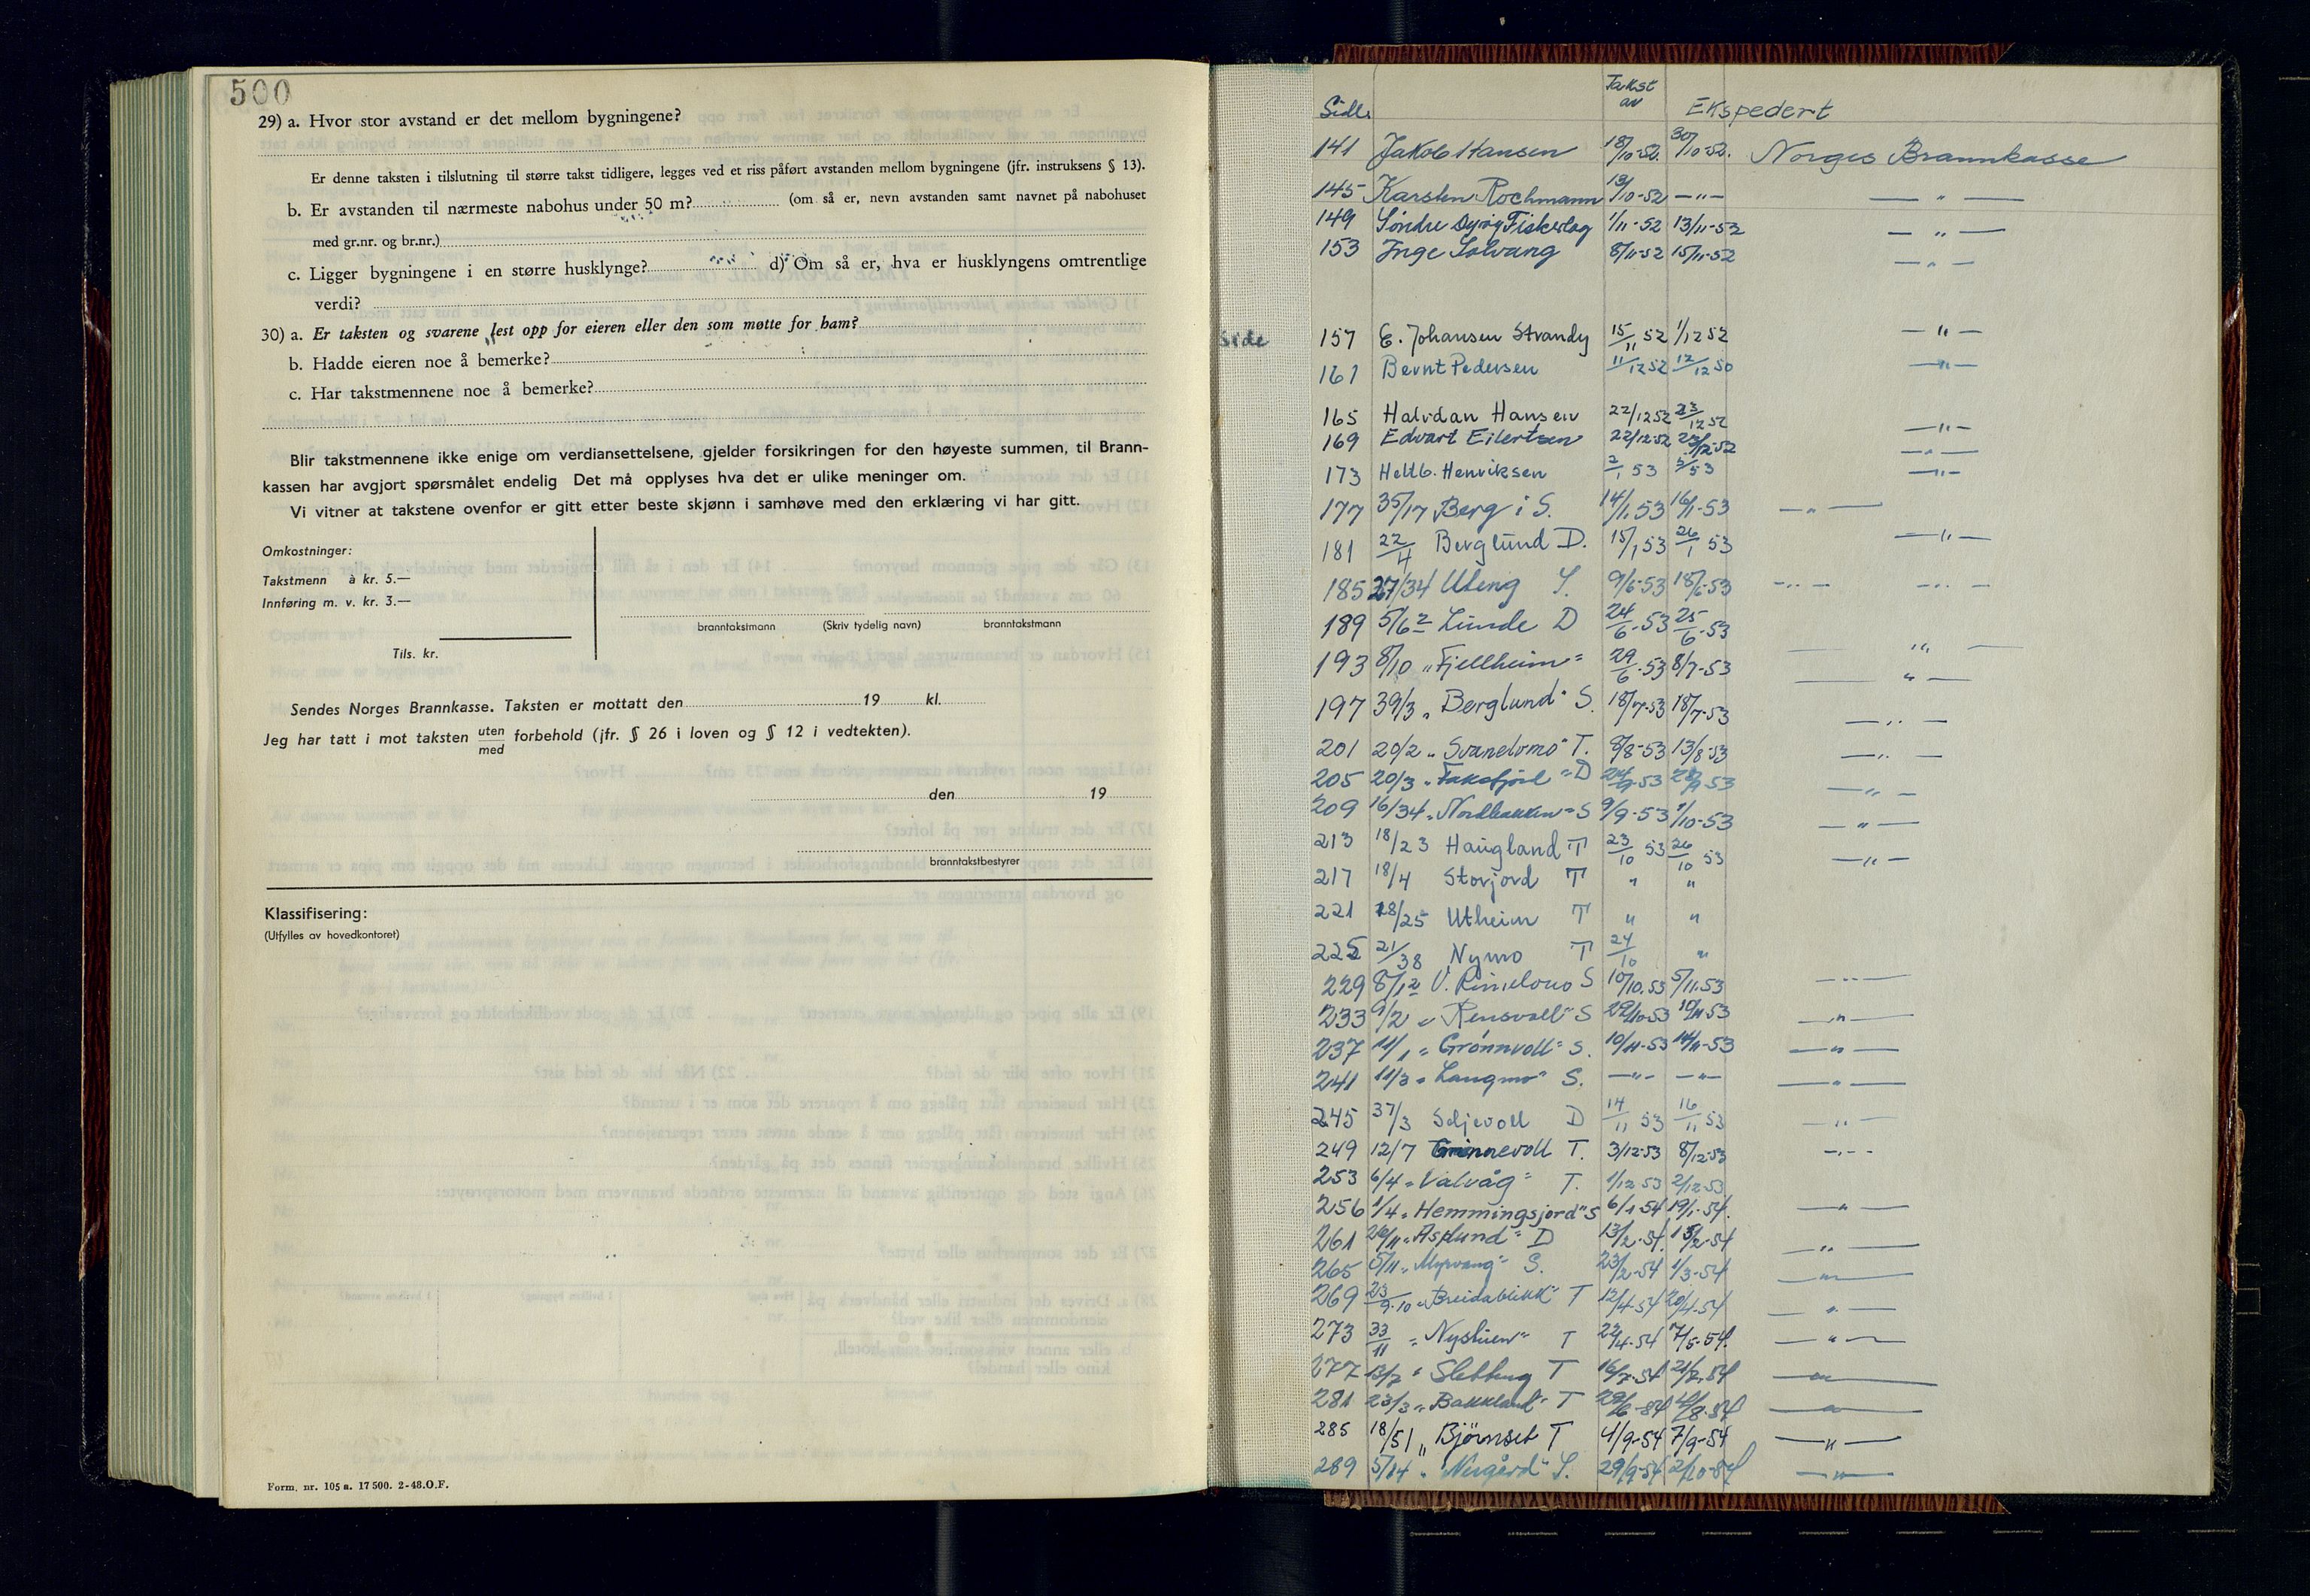 500
29) a. Hvor stor avstand er det mellom bygningene?
Er denne taksten i tilslutning til større takst tidligere, legges ved et riss påført avstanden mellom bygningene (jfr. instruksens § 13).
b. Er avstanden til nærmeste nabohus under 50 m? (om så er, nevn avstanden samt navnet på nabohuset
med gr.nr. og br.nr.)
c. Ligger bygningene i en større husklynge? d) Om så er, hva er husklyngens omtrentlige
verdi?
30) a. Er taksten og svarene lest opp for eieren eller den som møtte for ham?
b. Hadde eieren noe å bemerke?
c. Har takstmennene noe å bemerke?
Blir takstmennene ikke enige om verdiansettelsene, gjelder forsikringen for den høyeste summen, til Brann-
kassen har avgjort spørsmålet endelig Det må opplyses hva det er ulike meninger om.
Vi vitner at takstene ovenfor er gitt etter beste skjønn i samhøve med den erklæring vi har gitt.
Omkostninger:
Takstmenn à kr. 5.—
Innføring m. v. kr. 3.—
Tils. kr.
branntakstmann (Skriv tydelig navn) branntakstmann
Sendes Norges Brannkasse. Taksten er mottatt den 19 kl.
Jeg har tatt i mot taksten uten/med forbehold (jfr. § 26 i loven og § 12 i vedtekten).
den 19
branntakstbestyrer
Klassifisering:
(Utfylles av hovedkontoret)
Form. nr. 105 a. 17 500. 2-48. O.F.
Side Takst av Ekspedert
141 Jakob Hansen 18/10-52. 30/10-52. Norges Brannkasse
145 Karsten Rochmann 13/10-52 —"— — " —
149 Søndre Dyrøy Fiskerlag 1/11-52 13/11-52 — " —
153 Inge Solvang 8/11-52 15/11-52 — " —
Side 157 E. Johansen Strandy 15/11 52 1/12 52 — " —
161 Bernt Pedersen 11/12 52 12/12 50 — " —
165 Halvdan Hansen 22/12 52 23/12 52 — " —
169 Edvart Eilertsen 22/12-52 23/12-52 — " —
173 Henriksen 2/1 53 53 — " —
177 35/17 Berg i S. 14/1 53 16/1-53 — " —
181 22/4 Berglund D. 15/1 53 26/1 53 — " —
185 27/34 Uteng S. 9/6-53 18/6-53 — " — — " —
189 5/62 Lunde D 24/6-53 25/6-53 — " —
193 8/10 "Fjellheim" 29/6-53 8/7-53 — " —
197 39/3 "Berglund" S. 18/7-53 18/7-53 — " —
201 20/2 "Svanelvmo" T. 8/8-53 13/8-53 — " —
205 20/3 " D 53 53 — " —
209 16/34 "Nordbakken" S 9/9-53 1/10-53 — " —
213 18/23 Haugland T 23/10 53 26/10 53 — " —
217 18/4 Storjord T " "
221 18/25 Utheim T " "
225 21/38 Nymo T 24/10 "
229 8/12 S 10/10.53 5/11.53 — " —
233 9/2 "Rensvoll" S 29/10-53 53 — " —
237 11/1 "Grønnvoll" S. 10/11-53 14/11-53 — " —
241 11/3 "Langmo" S. —"— —"— — " —
245 37/3 Seljevoll D 14/11 53 16/11 53 — " —
249 12/7 T. 3/12-53 8/12-53 — " —
253 6/4 "Valvåg" T. 1/12 53 2/12-53
256 1/4 "Hemmingsjord" S 6/1-54 19/1-54. — " —
261 26/11 "Asplund" D 13/2-54. 15/2-54 — " —
265 5/11 "Myrvang" S. 23/2-54 1/3-54 — " —
269 23/9-10 "Breidablikk" T 12/4-54 20/4-54 — " —
273 33/11 "Nystuen" T 22/4-54 7/5-54. — " —
277 13/7 " T 16/7-54 21/7-54 — " —
281 23/3 "Bakkland" T 54 54 — " —
285 18/51 "Bjørnset T 4/9-54 7/9-54 — " —
289 5/14 "Nergård" S. 29/9-54 2/10-54 — " —